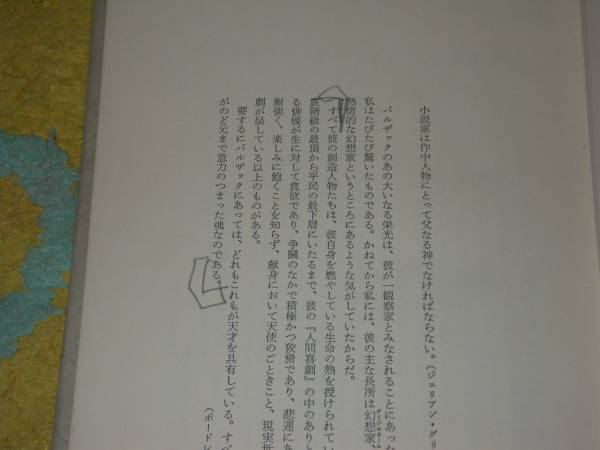 小説家は作中人物にとって父なる神でなければならない。(ジュリアン・グリ
バルザックのあの大いなる栄光は、彼が一観察家とみなされることにあった
私はたびたび驚いたものである。かねてから私には、彼の主な長所は幻想家、
熱情的な幻想家というところにあるような気がしていたからだ。
すべて彼の創造人物たちは、彼自身を燃やしている生命の熱を授けられてい
族階級の最頂から平民の最下層にいたるまで、彼の『人間喜劇』の中のありと
る俳優が生に対して貪欲であり、争闘のなかで積極かつ狡猾であり、悲運にあ
耐強く、楽しみに飽くことを知らず、献身において天使のごときこと、現実世
劇が呈している以上のものがある。
要するにバルザックにあっては、どれもこれもが天才を具有している。すべ
がのど元まで意力のつまった魂なのである。
(ボードレ